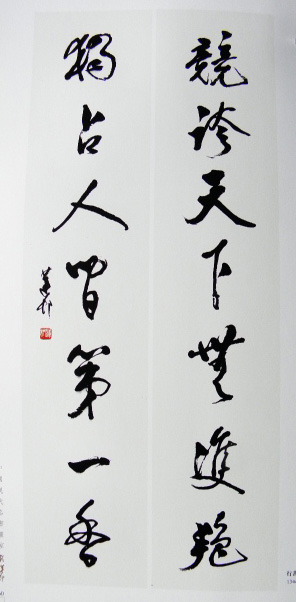 競誇天下無雙艷
獨占人間第一香